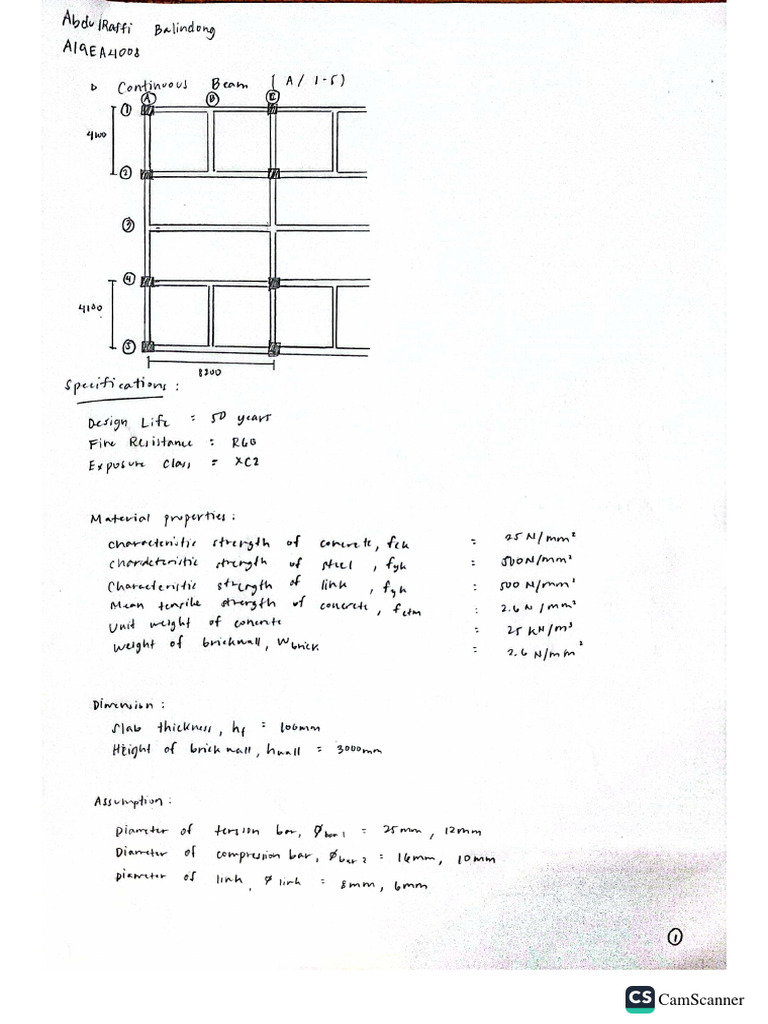 AbdulRaffi Balindong
A19EA4008
D Continuous Beam ( A / 1-5 )
A B C
1
4100
2
3
4
4100
5
8200
Specifications :
Design Life : 50 years
Fire Resistance : R60
Exposure Class = XC2
Material properties :
Characteristic strength of concrete, fck : 25 N/mm²
Characteristic strength of steel , fyk : 500N/mm²
Characteristic strength of link , fyk : 500 N/mm²
Mean tensile strength of concrete , fctm : 2.6 N/mm²
Unit weight of concrete : 25 kN/m³
Weight of brickwall, Wbrick : 2.6 N/mm²
Dimension :
Slab thickness , hf = 100mm
Height of brick wall , hwall = 3000mm
Assumption :
Diameter of tension bar, Øbar 1 = 25mm , 12mm
Diameter of compression bar, Øbar 2 = 16mm, 10mm
Diameter of link, Ø link = 8mm, 6mm
1
CS CamScanner